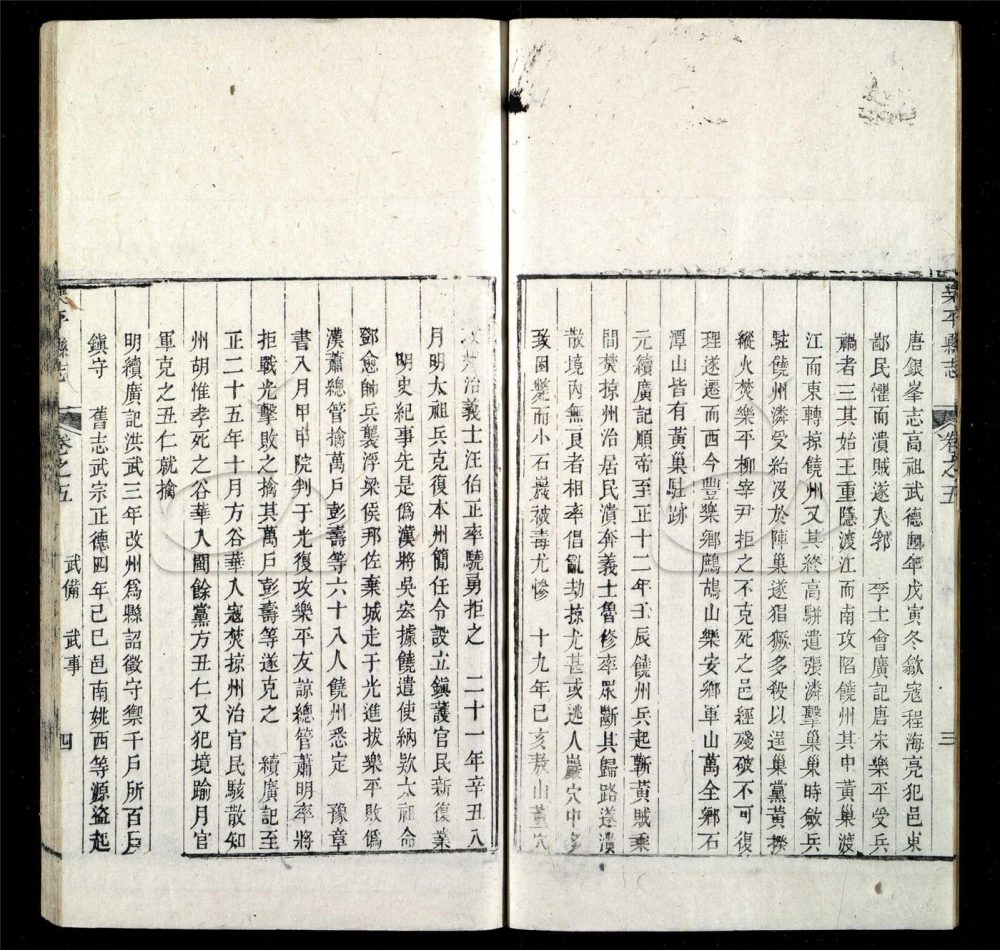 樂平縣志
卷之五
三
唐銀峯志高祖武德四年戊寅冬歙寇程海亮犯邑東
鄙民懼而潰賊遂入郛 李士會廣記唐宋樂平受兵
禍者三其始王重隱渡江而南攻陷饒州其中黃巢渡
江而東轉掠饒州又其終高駢遣張潾擊巢巢時斂兵
駐饒州潾受紿沒於陣巢遂猖獗多殺以逞巢黨黃揆
縱火焚樂平柳宰尹拒之不克死之邑經殘破不可復
理遂遷而西今豐樂鄉鷓鴣山樂安鄉軍山萬全鄉石
潭山皆有黃巢駐跡
元續廣記順帝至正十二年壬辰饒州兵起蘄黃賊乘
間焚掠州治居民潰奔義士魯修率眾斷其歸路遂潰
散境內無良者相率倡亂劫掠尤甚或逃人巖穴中多
致困斃而小石巖被毒尤慘 十九年己亥敖山董六
焚治義士汪伯正率驍勇拒之 二十一年辛丑八
月明太祖兵克復本州簡任令設立鎮護官民新復業
明史紀事先是僞漢將吳宏據饒遣使納欵太祖命
鄧愈帥兵襲浮梁侯邢佐棄城走于光進拔樂平敗僞
漢蕭總管擒萬戶彭壽等六十八人饒州悉定 豫章
書入月甲甲院判于光復攻樂平友諒總管蕭明率將
拒戰光擊敗之擒其萬戶彭壽等遂克之 續廣記至
正二十五年十月方谷華人寇焚掠州治官民駭散知
州胡惟孝死之谷華人閩餘黨方丑仁又犯境踰月官
軍克之丑仁就擒
明續廣記洪武三年改州爲縣詔徵守禦千戶所百戶
鎮守 舊志武宗正德四年己巳邑南姚西等源盜起
樂平縣志
卷之五
武備 武事
四